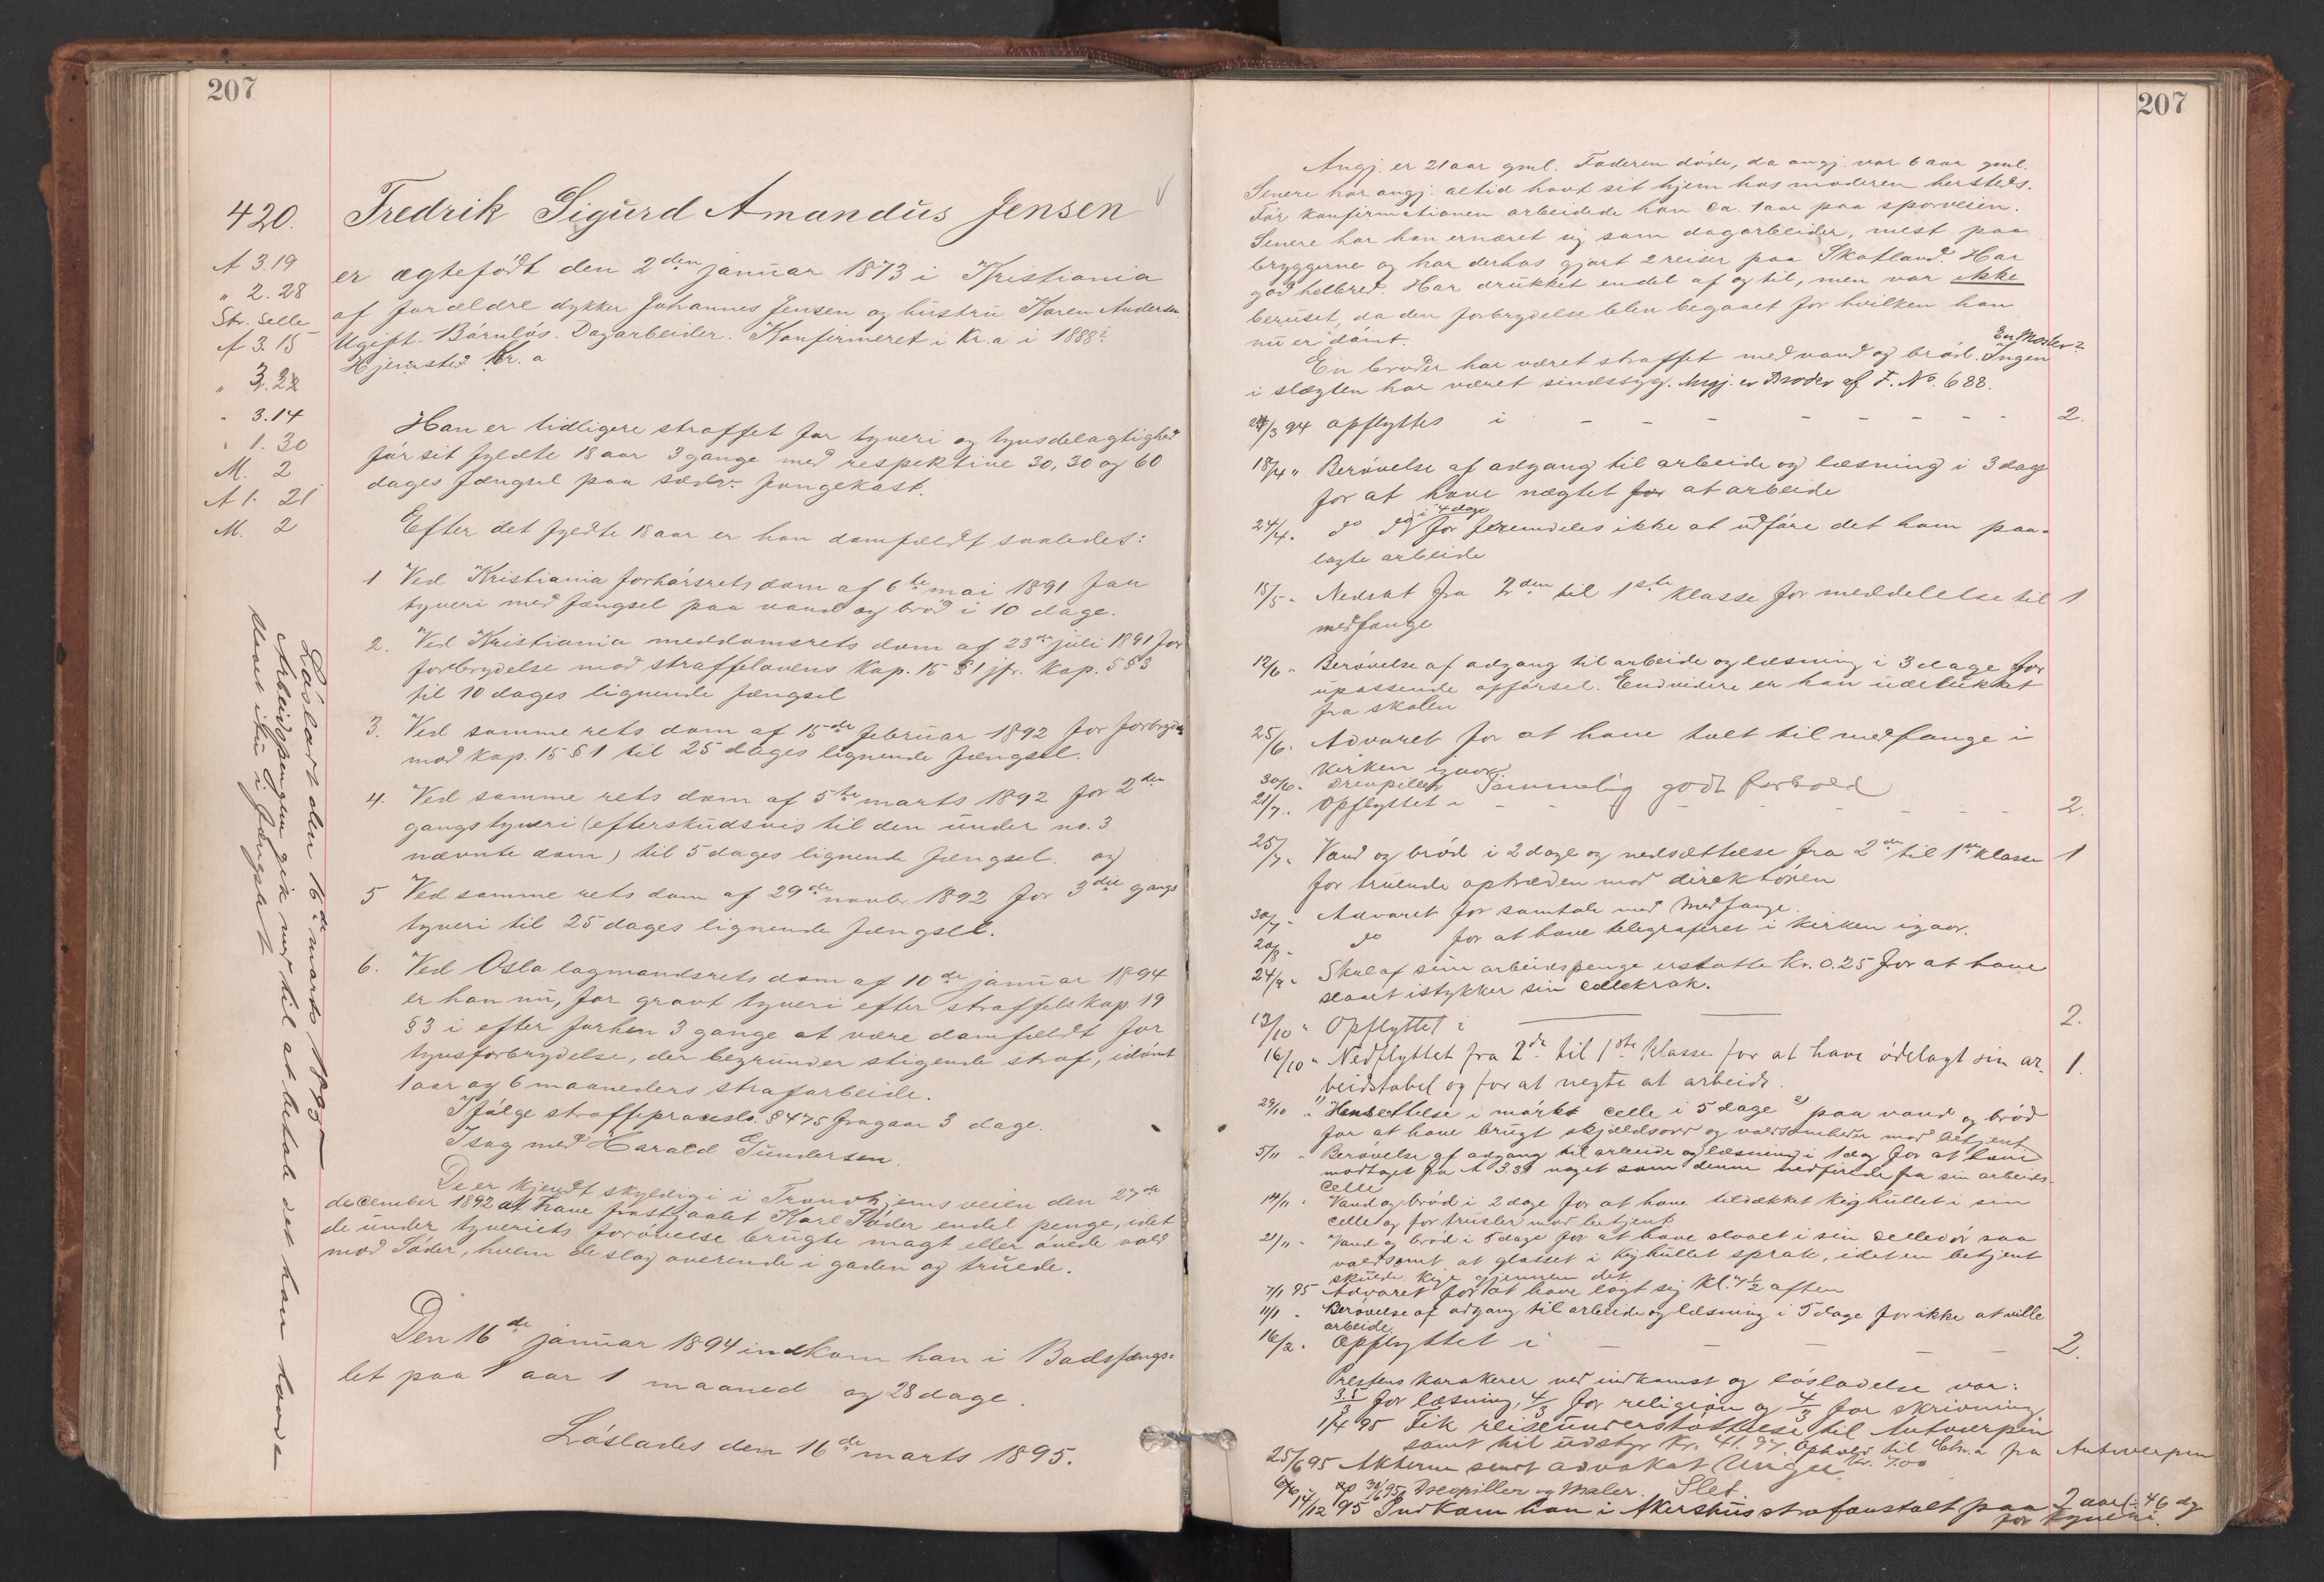 207
420.
A 3.19
" 2.28
Str. Selle
A 3.15
" 3.22
" 3.14
" 1.30
M. 2
A 1. 21
M. 2
Fredrik Sigurd Amandus Jensen
er ægtefødt den 2den januar 1873 i Kristiania
af forældre dykker Johannes Jensen og hustru Karen Andersen
Ugift. Barnløs. Dagarbeider. Konfirmeret i Kr.a i 1888
Hjemsted Kr.a
Han er tidligere straffet for tyveri og tyvsdelagtighed
før sit fyldte 18 aar 3 gange med respektive 30, 30 og 60
dages fængsel paa sædv. fangekost.
Efter det fyldte 18 aar er han domfældt saaledes:
1 Ved Kristiania forhørsrets dom af 6te mai 1891 for
tyveri med fængsel paa vand og brød i 10 dage.
2. Ved Kristiania meddomsrets dom af 23de juli 1891 for
forbrydelse mod straffelovens Kap. 15 § 1 jfr. Kap. 5 § 3
til 10 dages lignende fængsel
3. Ved samme rets dom af 15de februar 1892 for forbrydelse
mod Kap. 15 § 1 til 25 dages lignende fængsel.
4. Ved samme rets dom af 5te marts 1892 for 2den
gangs tyveri (efterskudsvis til den under no. 3
nævnte dom) til 5 dages lignende fængsel. og
5 Ved samme rets dom af 29de novbr. 1892 for 3die gangs
tyveri til 25 dages lignende fængsel.
6. Ved Oslo lagmandsrets dom af 10de januar 1894
er han nu, for grovt tyveri efter straffels kap. 19
§ 3 i efter forhen 3 gange at være domfældt for
tyvsforbrydelse, der begrunder stigende straf, idømt
1 aar og 6 maaneders strafarbeide.
Ifølge straffeproceslo. § 475 fragaar 3 dage.
I sag med Harald Gundersen.
De er kjendt skyldig i i Trondhjemsveien den 27de
december 1892 at have frastjaalet Karl Søder endel penge, idet
de under tyveriets forøvelse brugte magt eller øvede vold
mod Søder, hvem de slog overende i gaden og truede.
Den 16de januar 1894 indkom han i Bodsfængs-
let paa 1 aar 1 maaned og 28 dage.
Løslades den 16de marts 1895.
Løsladt den 16de marts 1895
Arbeidspengene gik med til at betale det han havde
i fængslet
207
Angj. er 21 aar gml. Faderen døde, da angj. var 6 aar gml.
Senere har angj. altid havt sit hjem hos moderen hersteds.
Før konfirmationen arbeidede han ca. 1 aar paa sporveien.
Senere har han ernæret sig som dagarbeider, mest paa
bryggerne og har derhos gjort 2 reiser paa Skotland. Har
god helbred. Har drukket endel af og til, men var ikke
beruset, da den forbrydelse blev begaaet for hvilken han
nu er dømt.
En Moster?
En broder har været straffet med vand og brød. Ingen
i slægten har været sindssyg. Angj. er Broder af F. No. 688.
24/3 94 opflyttes i - - - - - - - - 2.
18/4 " Berøvelse af adgang til arbeide og læsning i 3 dage
for at have nægtet for at arbeide
i 4 dage
24/4 " do do for fremdeles ikke at udføre det ham paa-
lagte arbeide
15/5 " Nedsat fra 2den til 1ste klasse for meddelelse til 1
medfange
12/6 " Berøvelse af adgang til arbeide og læsning i 3 dage for
upassende opførsel. Endvidere er han udelukket
fra skolen
25/6 " Advaret for at have talt til medfange i
kirken igaar
30/6 " Drevpiller Temmelig godt forhold
21/7 " Opflyttet i - - - - - - 2.
25/7 " Vand og brød i 2 dage og nedsættelse fra 2de til 1ste klasse 1
for truende optræden mod direktøren
30/7 " Advaret for samtale med Medfange.
20/8 " do for at have telegraferet i kirken igaar.
24/9 " Skal af sine arbeidspenge erstatte Kr. 0.25 for at have
slaaet istykker sin cellekrak.
13/10 " Opflyttet i 2.
16/10 " Nedflyttet fra 2de til 1ste klasse for at have ødelagt sin ar- 1.
beidstabel og for at negte at arbeide.
29/10 " Hensættelse i mørk celle i 5 dage paa vand og brød
for at have brugt skjældsord og voldsomheder mod betjent
5/11 " Berøvelse af adgang til arbeide og læsning i 1 dag for at have
modtaget fra A 3.39 noget som denne nedfirede fra sin arbeids-
celle
14/11 " Vand og brød i 2 dage for at have tildækket kighullet i sin
celle og for trusler mod betjent
21/11 " Vand og brød i 5 dage for at have slaaet i sin celledør saa
voldsomt at glasset i kighullet sprak, idet en betjent
skulde kige gjennem det.
7/1 95 Advaret for at have lagt sig Kl. 7 1/2 aften
11/1 " Berøvelse af adgang til arbeide og læsning i 5 dage for ikke at ville
arbeide
16/2 " Opflyttet i - - - - - 2.
Prestens karakerer ved indkomst og løsladelse var:
3.5/3 for læsning, 4/3 for religion og 4/3 for skrivning
1/4 95 Fik reiseunderstøttelse til Antverpen
samt til udstyr Kr. 41.97. Ophold til Chr.a fra Antwerpen
Kr. 7.00
25/6 95 Akterne sendt advokat Unger
30/6 95 Drevpiller og Maler. Slet.
14/12 95 Indkom han i Akershus strafanstalt paa 2 aar ÷ 46 dg
for tyveri.